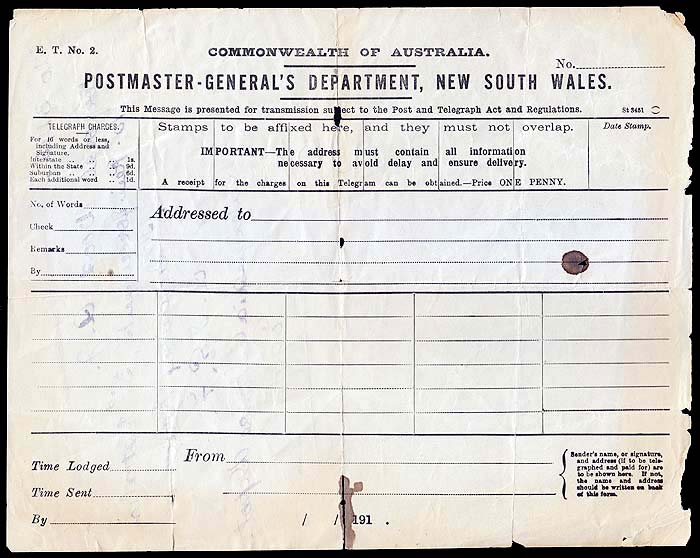 E. T. No. 2.
COMMONWEALTH OF AUSTRALIA.
No.
POSTMASTER-GENERAL'S DEPARTMENT, NEW SOUTH WALES.
This Message is presented for transmission subject to the Post and Telegraph Act and Regulations.
St 3451
TELEGRAPH CHARGES.
For 16 words or less, including Address and Signature.
Interstate .. .. .. 1s.
Within the State .. .. 9d.
Suburban .. .. .. 6d.
Each additional word .. 1d.
Stamps to be affixed here, and they must not overlap.
IMPORTANT—The address must contain all information
necessary to avoid delay and ensure delivery.
A receipt for the charges on this Telegram can be obtained.—Price ONE PENNY.
Date Stamp.
No. of Words
Check
Remarks
By
Addressed to
Time Lodged
Time Sent
By
From
/ / 191 .
Sender's name, or signature,
and address (if to be tele-
graphed and paid for) are
to be shown here. If not,
the name and address
should be written on back
of this form.